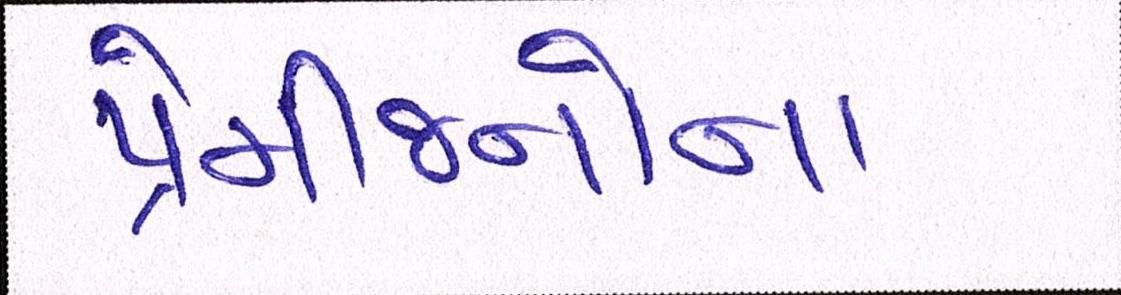 પ્રેમીજનોના